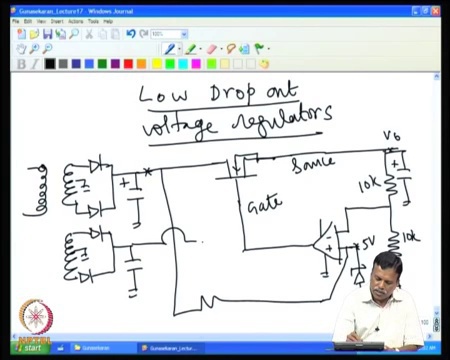 Gunasekaran_Lecture17 - Windows Journal
File Edit View Insert Actions Tools Help
Low Drop out
voltage regulators
Source
Vo
10k
Gate
5V
10k
NPTEL
start
Gunasekaran
Gunasekaran_Lectu...